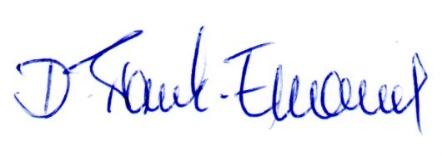 D. Frank-Emanuel